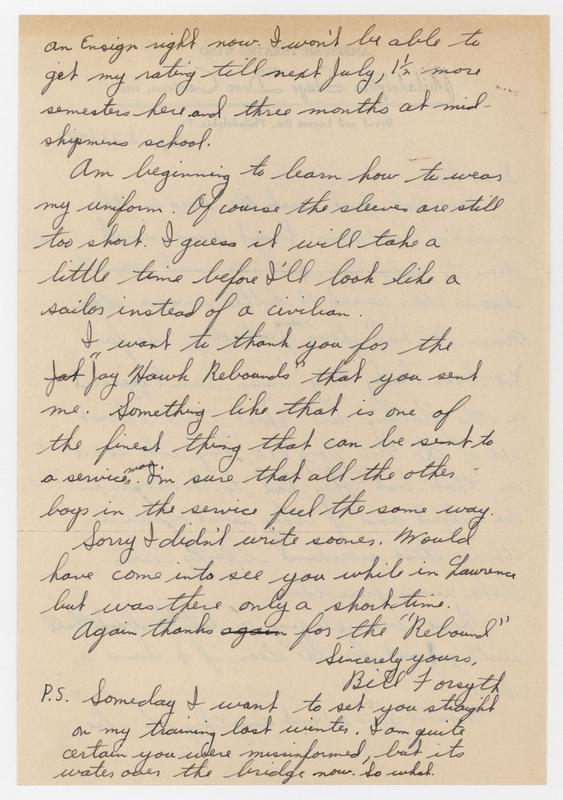 an Ensign right now. I won't be able to
get my rating till next July, 1½ more
semesters here and three months at mid-
shipmens school.
Am beginning to learn how to wear
my uniform. Of course the sleeves are still
too short. I guess it will take a
little time before I'll look like a
sailor instead of a civilian.
I want to thank you for the
Jat "Jay Hawk Rebounds" that you sent
me. Something like that is one of
the finest thing that can be sent to
a service man. I'm sure that all the other
boys in the service feel the same way.
Sorry I didn't write sooner. Would
have come into see you while in Lawrence
but was there only a short time.
Again thanks again for the "Rebound"
Sincerely yours,
Bill Forsyth
P.S. Someday I want to set you straight
on my training last winter. I am quite
certain you were missinformed, but its
water over the bridge now. So what.